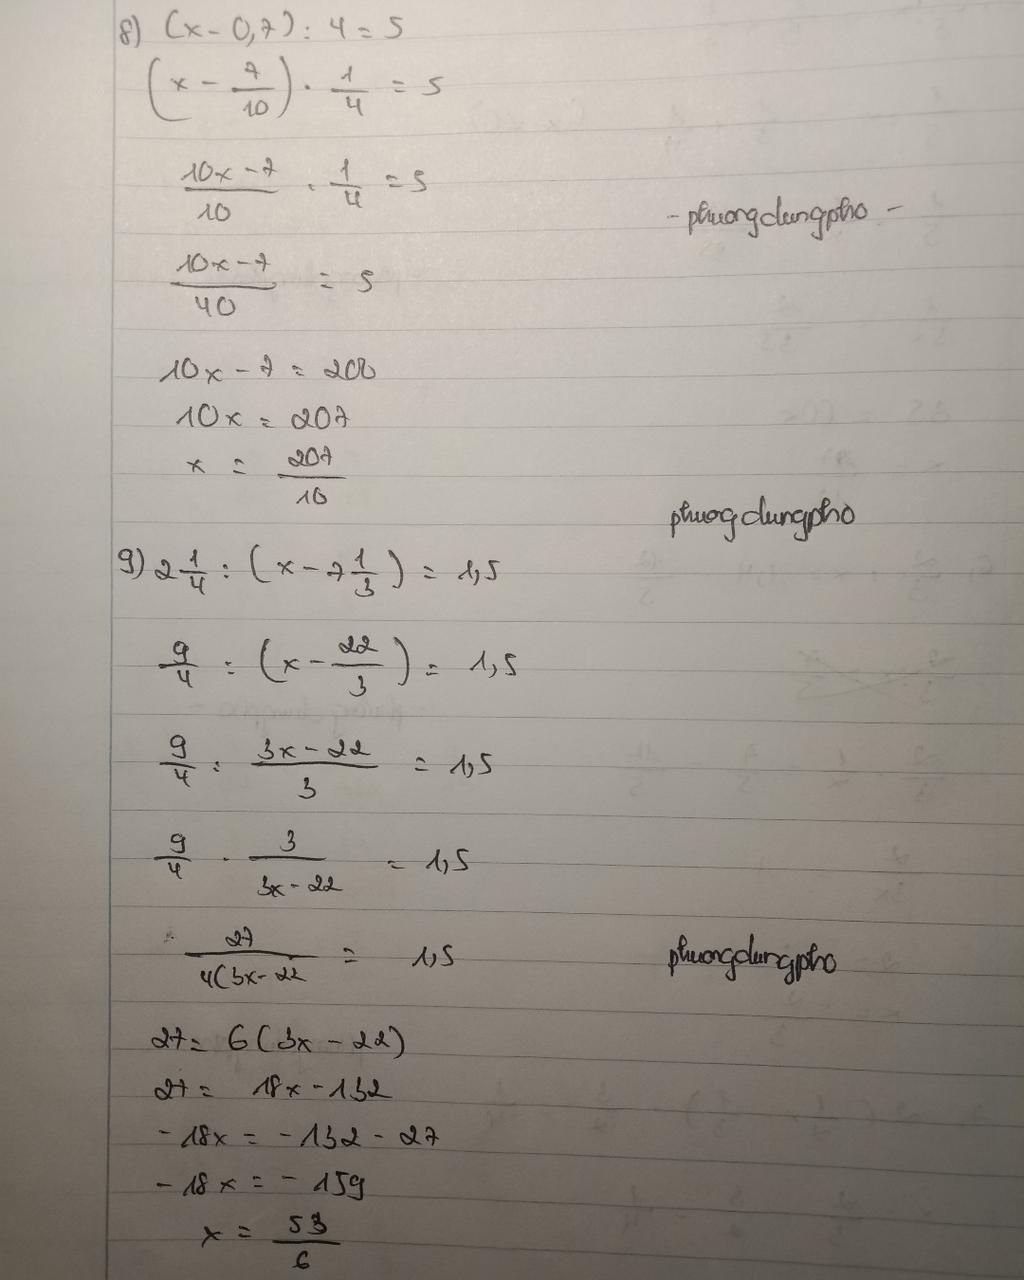 8) (x - 0,7) : 4 = 5
(x - 7/10) . 1/4 = 5
10x - 7/10 . 1/4 = 5
- phuongdungpho -
10x - 7/40 = 5
10x - 7 = 200
10x = 207
x = 207/10
phuogdungpho
9) 2 1/4 : (x - 7 1/3) = 1,5
9/4 : (x - 22/3) = 1,5
9/4 : 3x - 22/3 = 1,5
9/4 . 3/3x - 22 = 1,5
27/4(3x - 22 = 1,5
phuongdungpho
27 = 6(3x - 22)
27 = 18x - 132
- 18x = - 132 - 27
- 18x = - 159
x = 53/6